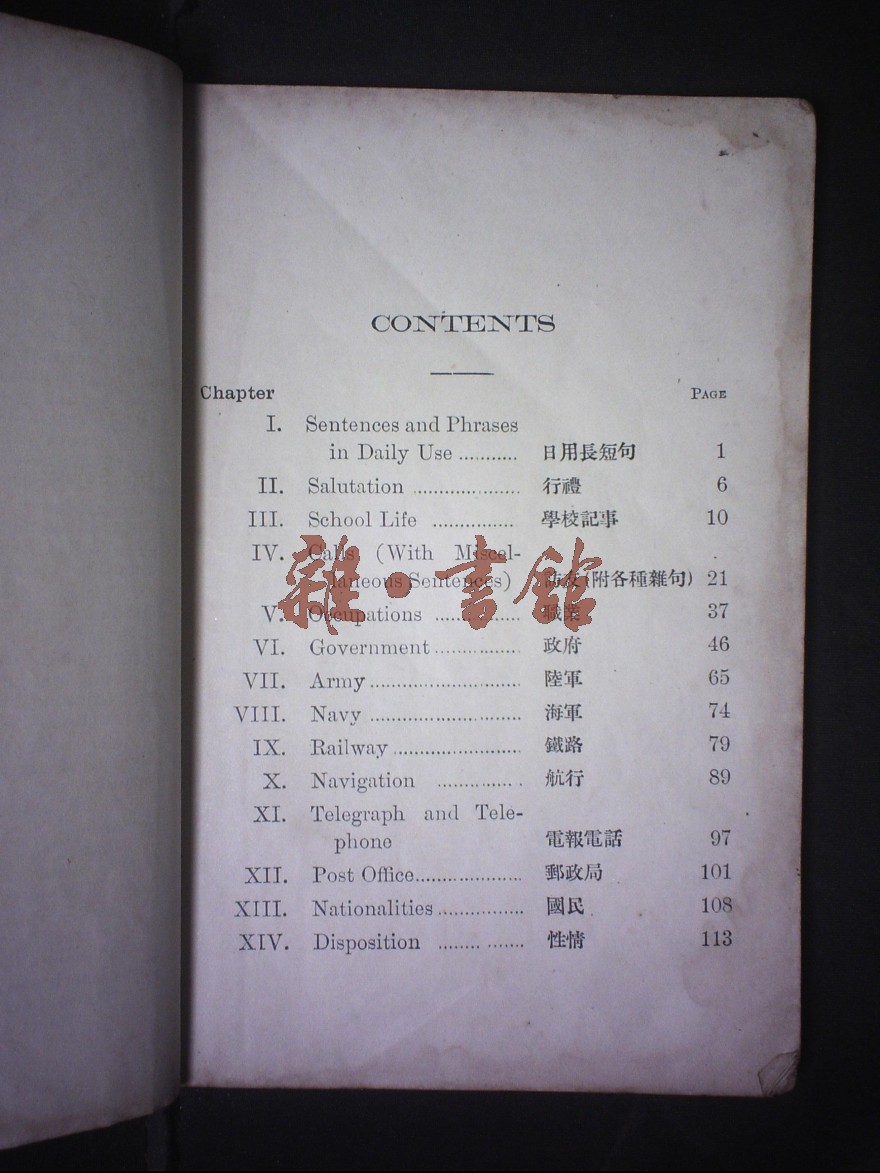 CONTENTS
Chapter PAGE
I. Sentences and Phrases
in Daily Use ........... 日用長短句 1
II. Salutation .................... 行禮 6
III. School Life ............... 學校記事 10
IV. Calls (With Miscel-
laneous Sentences) 訪友(附各種雜句) 21
V. Occupations ................ 職業 37
VI. Government ................ 政府 46
VII. Army ............................ 陸軍 65
VIII. Navy ............................ 海軍 74
IX. Railway ........................ 鐵路 79
X. Navigation ............... 航行 89
XI. Telegraph and Tele-
phone 電報電話 97
XII. Post Office..................... 郵政局 101
XIII. Nationalities ................ 國民 108
XIV. Disposition ............... 性情 113
雜·書館